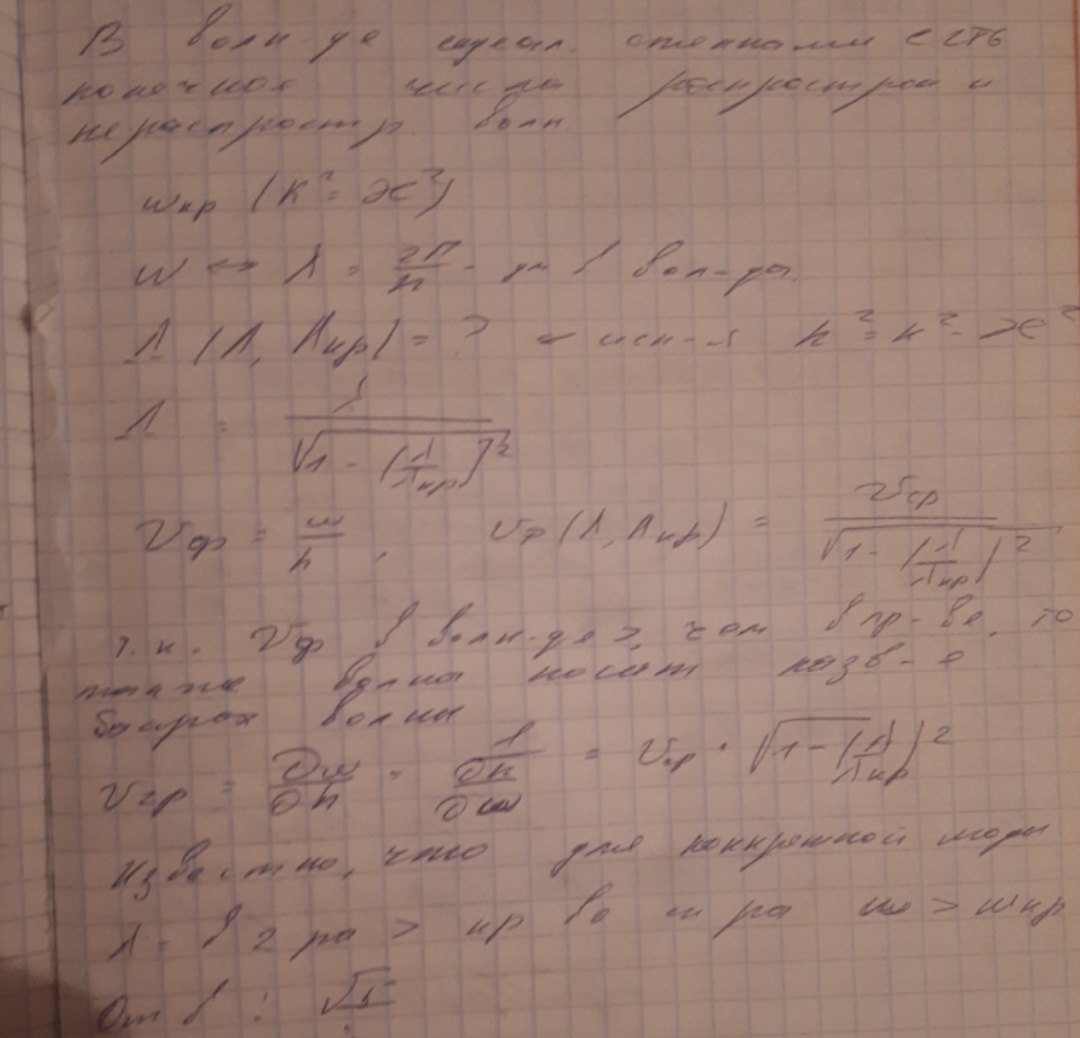 В волн-де стенками с
конечное число распростран и
нераспростр. волн.
ωкр (K² = æ²)
ω ↔ Λ = 2π/h - дл в вол-де.
Λ (λ, λкр) = ? h² = к² - æ²
Λ = λ / √1 - (λ/λкр)²
Vф = ω/h , Vф (λ, λкр) = Vср / √1 - (λ/λкр)²
т.к. Vф в волн-де >, чем в пр-ве, то
такие волны носят назв-е
быстрых волны
Vгр = ∂ω/∂h = 1 / ∂h/∂ω = Vср · √1 - (λ/λкр)²
Известно, что для конкретной моды
λ = в 2 ра > кр во ра ω > ωкр
Отв :